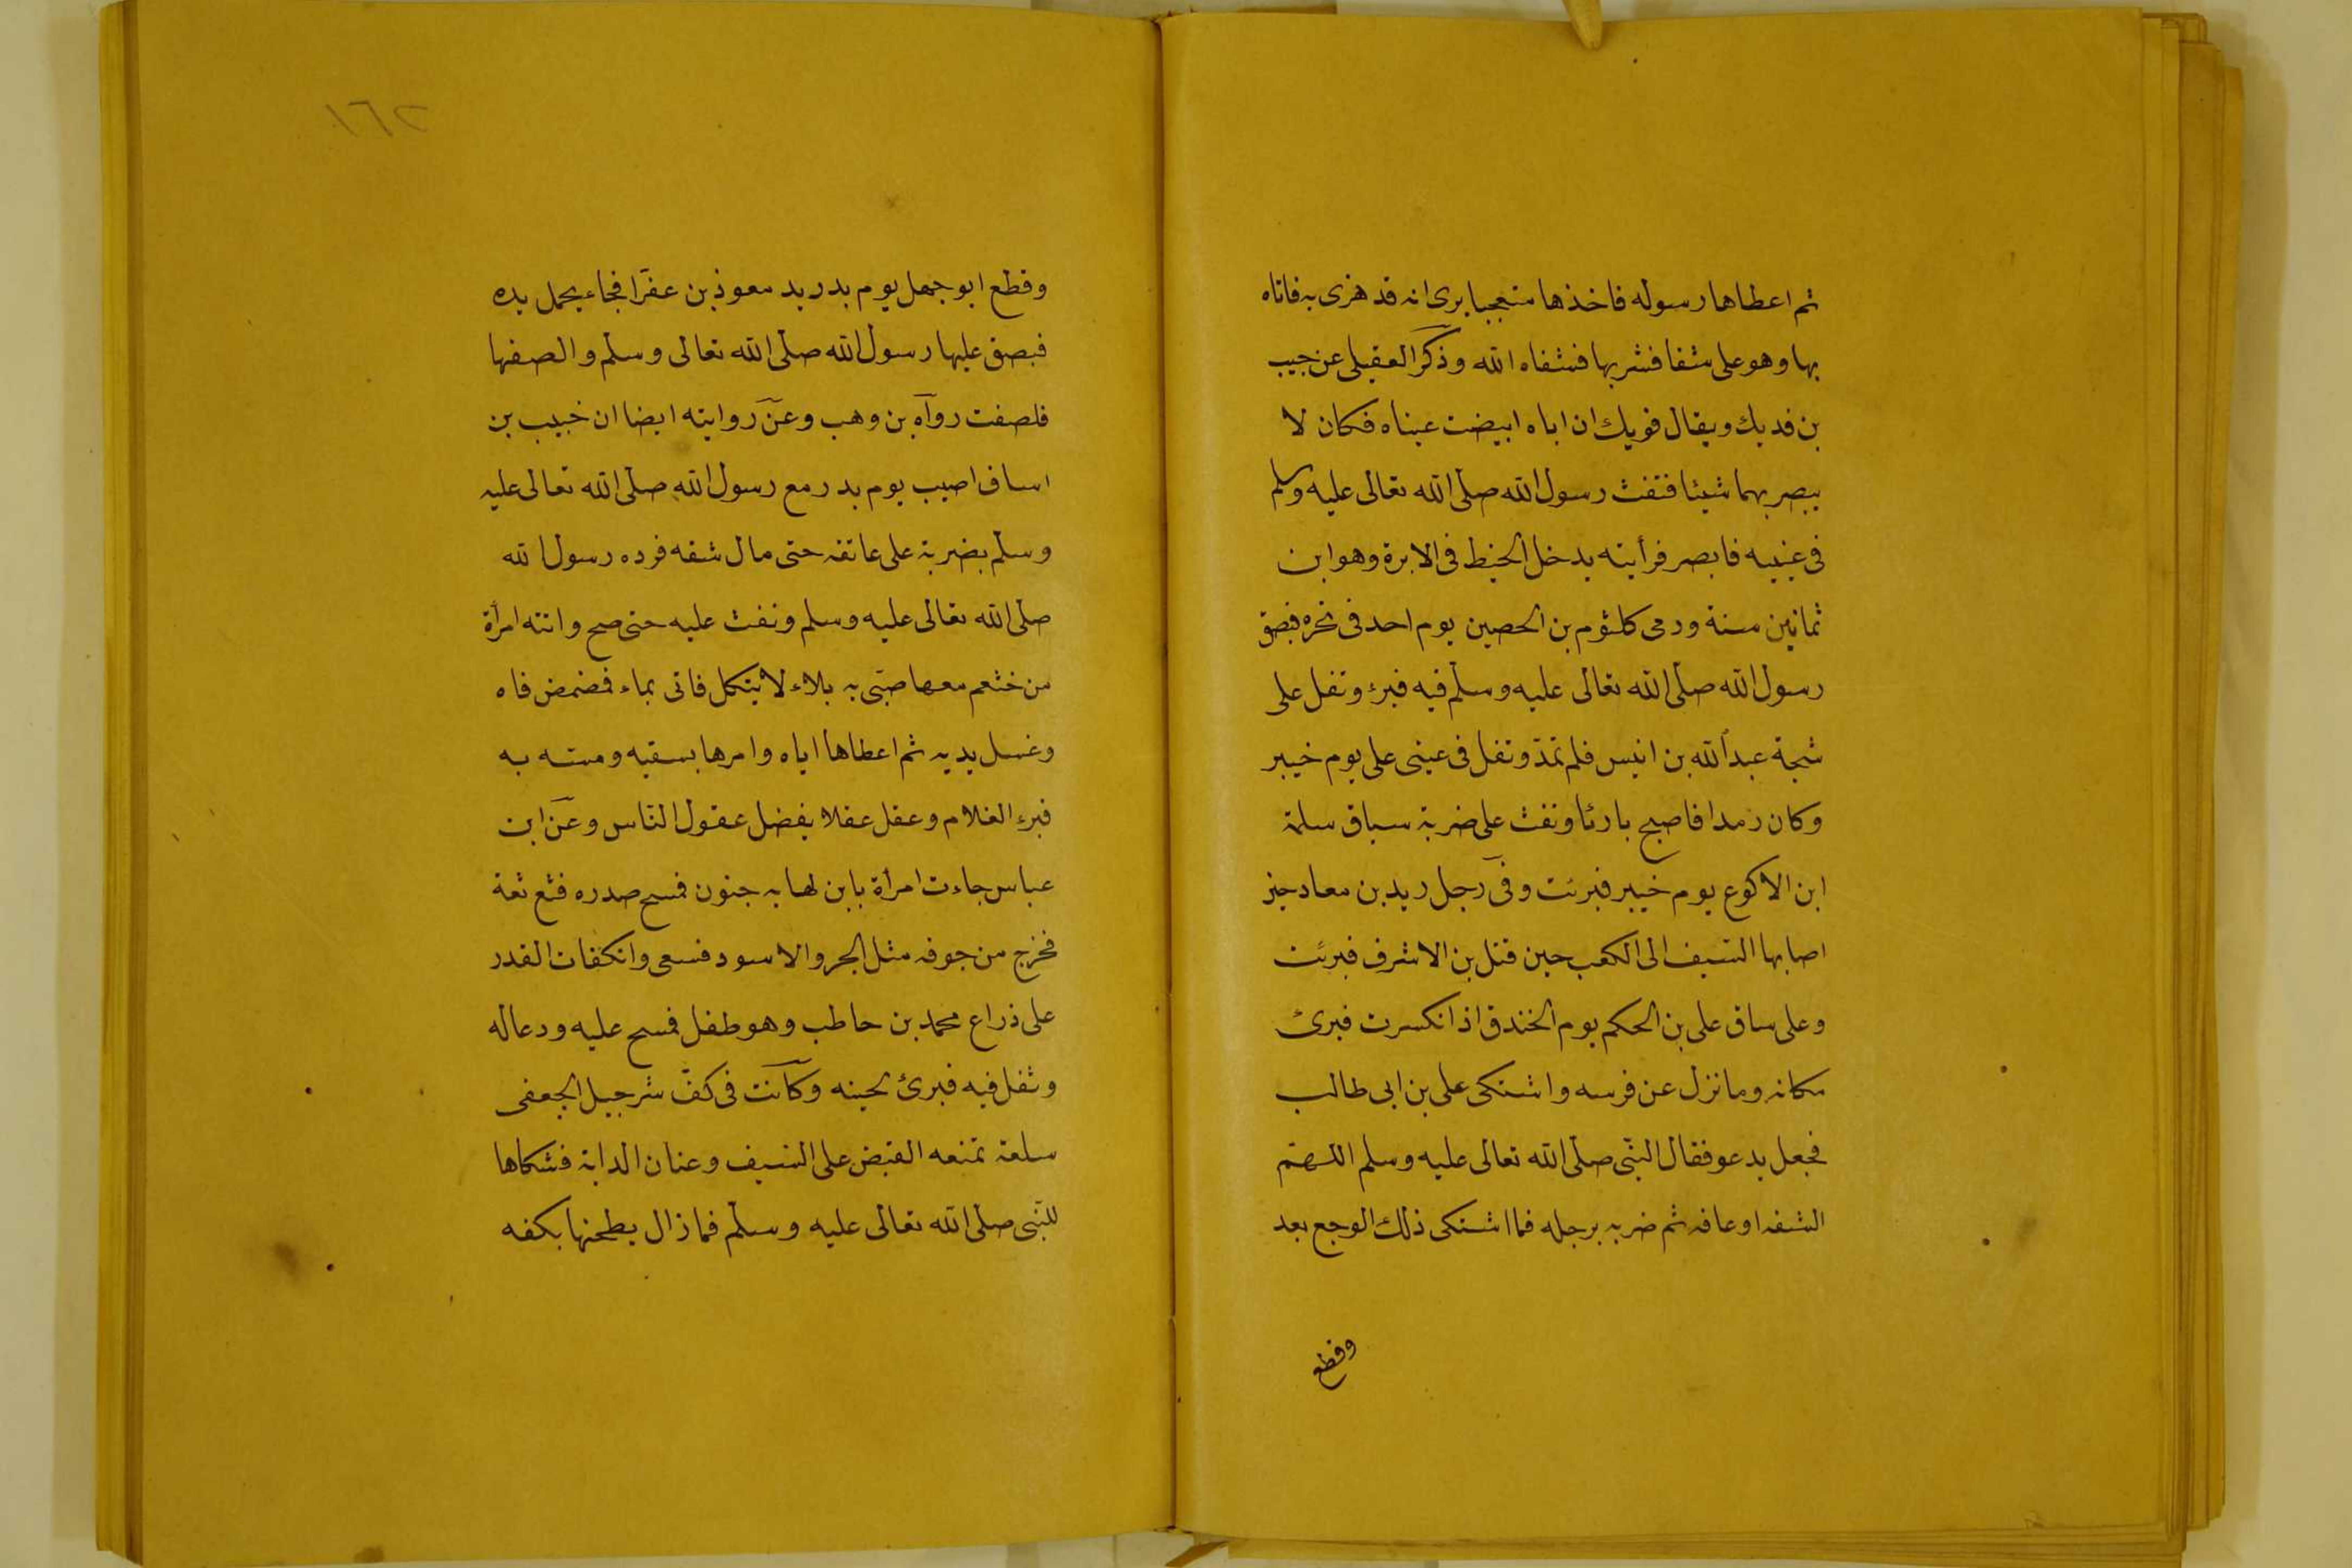 ثم اعطاها رسوله فاخذها متعجبا يرى انه قد هزى به فاتاه
بها وهو على شفا فشربها فشفاه الله وذكر العقيلى عن حبيب
بن فديك ويقال فويك ان اباه ابيضت عيناه فكان لا
يبصر بهما شيئا فنفث رسول الله صلى الله تعالى عليه وسلم
فى عينيه فابصر فرأيته يدخل الخيط فى الابرة وهو ابن
ثمانين سنة ورمى كلثوم بن الحصين يوم احد فى نحره فبصق
رسول الله صلى الله تعالى عليه وسلم فيه فبرء وتفل على
شجة عبد الله بن انيس فلم تمدّ وتفل فى عينى على يوم خيبر
وكان رمدا فاصبح بارئا ونفث على ضربة بساق سلمة
ابن الاكوع يوم خيبر فبرئت وفى رجل زيد بن معاد حين
اصابها السيف الى الكعب حين قتل بن الاشرف فبرئت
وعلى ساق على بن الحكم يوم الخندق اذ انكسرت فبرئ
مكانه وما نزل عن فرسه واشتكى على بن ابى طالب
فجعل يدعو فقال النبى صلى الله تعالى عليه وسلم اللهمّ
اشفه او عافه ثم ضربه برجله فما اشتكى ذلك الوجع بعد
وقطع
١٦٢
وقطع ابو جهل يوم بدر يد معوذ بن عفرا فجاء يحمل يده
فبصق عليها رسول الله صلى الله تعالى وسلم والصقها
فلصقت رواه بن وهب وعن روايته ايضا ان خبيب بن
اساف اصيب يوم بدر مع رسول الله صلى الله تعالى عليه
وسلم بضربة على عاتقه حتى مال شقه فرده رسول الله
صلى الله تعالى عليه وسلم ونفث عليه حتى صح واتته امرأة
من خثعم معها صبى به بلاء لا يتكلم فاتى بماء فمضمض فاه
وغسل يديه ثم اعطاها اياه وامرها بسقيه ومسّه به
فبرء الغلام وعقل عقلا يفضل عقول الناس وعن ابن
عباس جاءت امرأة بابن لها به جنون فمسح صدره فثع ثعة
فخرج من جوفه مثل الجرو الاسود فسعى وانكفات القدر
على ذراع محمد بن حاطب وهو طفل فمسح عليه ودعا له
وتفل فيه فبرئ لحينه وكانت فى كفّ شرجيل الجعفى
سلعة تمنعه القبض على السيف وعنان الدابة فشكاها
للنبى صلى الله تعالى عليه وسلم فما زال يطحنها بكفه